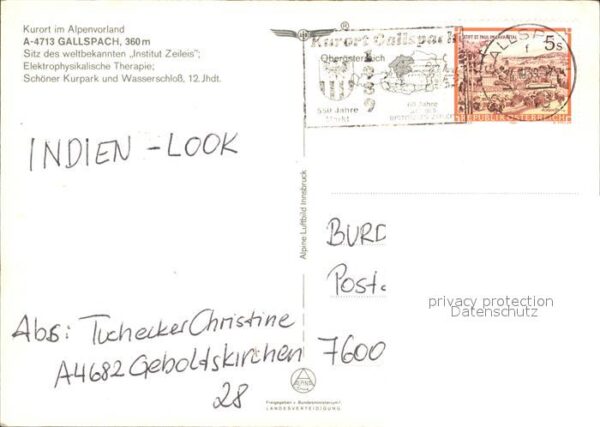 Kurort im Alpenvorland
A-4713 GALLSPACH, 360 m
Sitz des weltbekannten „Institut Zeileis";
Elektrophysikalische Therapie;
Schöner Kurpark und Wasserschloß, 12. Jhdt.
Kurort Gallspach
Oberösterreich
550 Jahre
Markt
60 Jahre
GALLSPACH
STIFT ST. PAUL IM LAVANTTAL
5s
REPUBLIK ÖSTERREICH
INDIEN - LOOK
Alpine Luftbild Innsbruck
BURD
Post.
privacy protection
Datenschutz
Abs: Tuchecker Christine
A4682 Geboldskirchen
28
7600
ALPINE
Freigegeben v. Bundesministerium f.
LANDESVERTEIDIGUNG